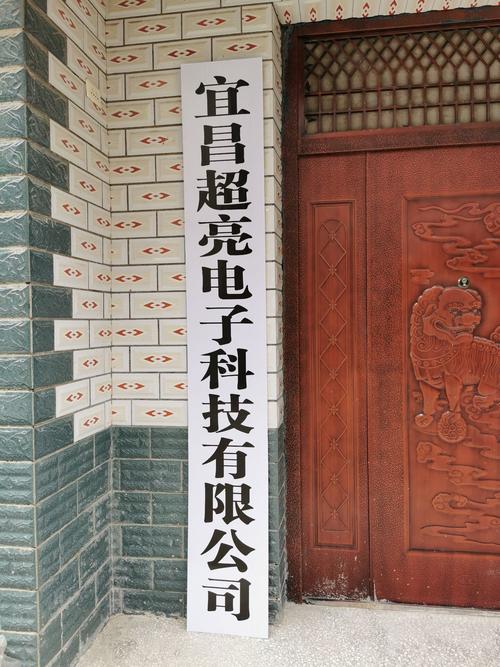 宜昌超亮电子科技有限公司